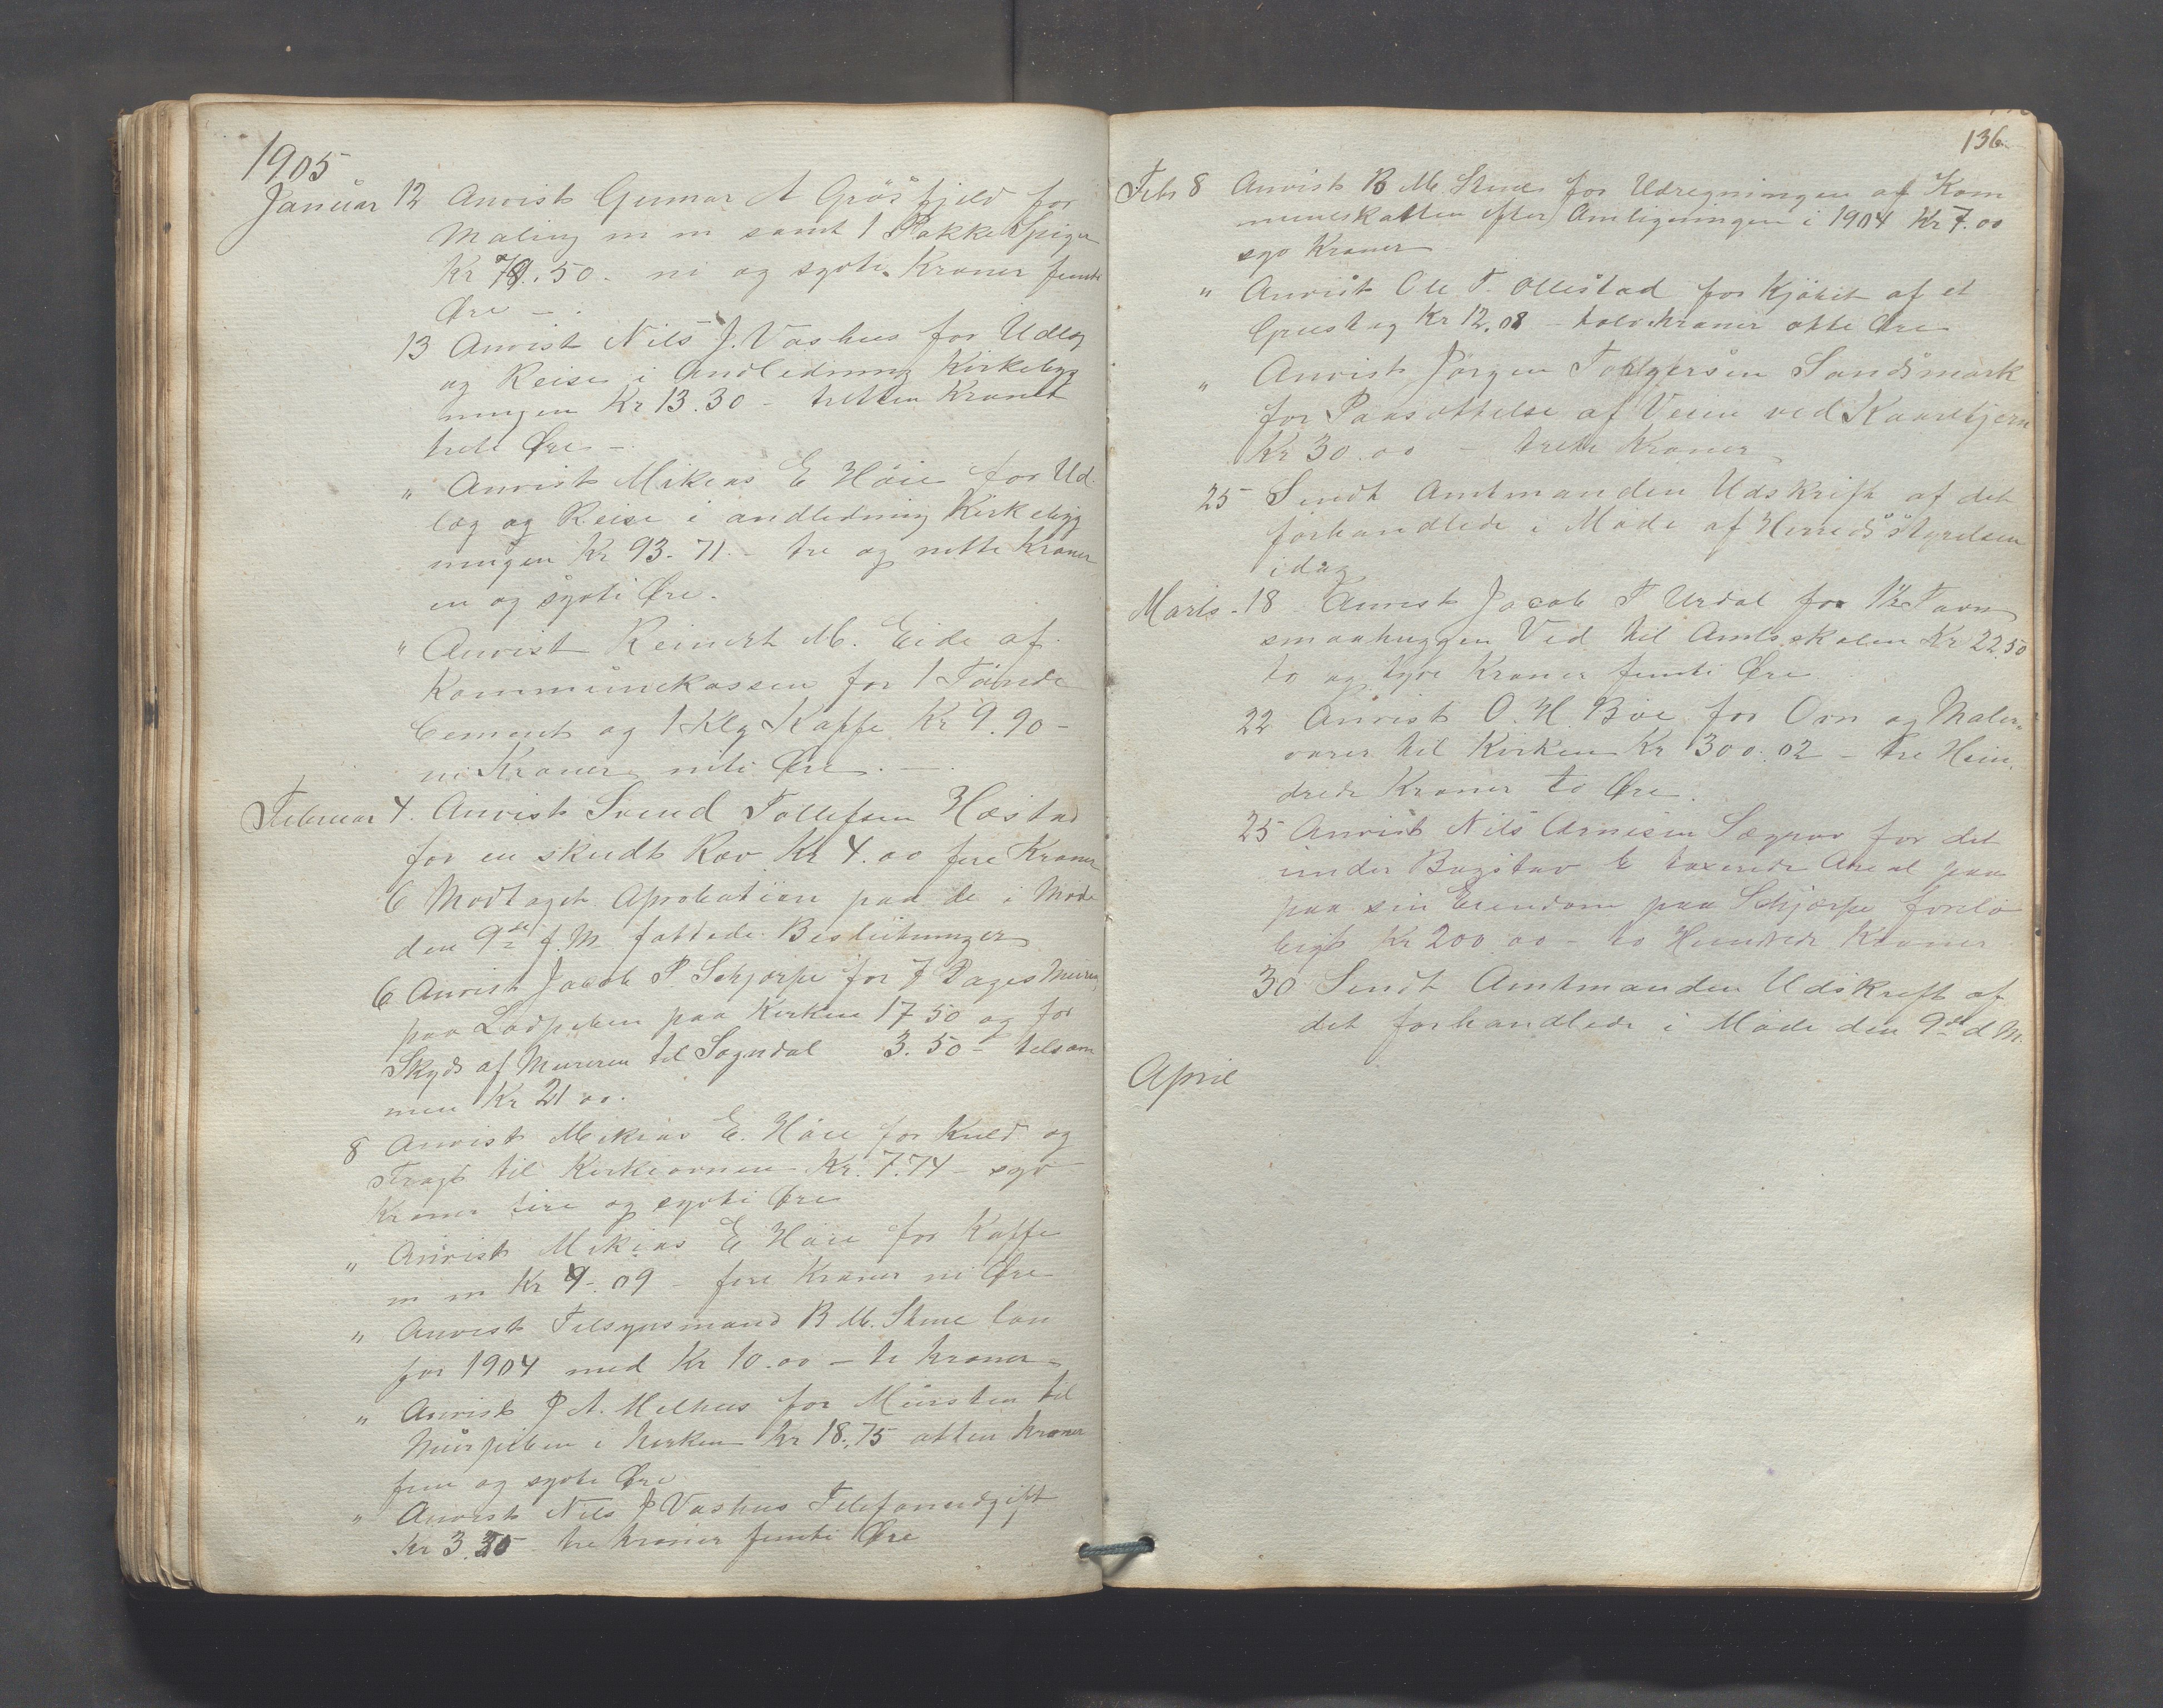 1905
Januar 12 Anvist Gunnar A Grøsfjeld for
Maling m m samt 1 Pakke Spiger
Kr 79.50 - ni og sytti Kroner femti
Øre -
13 Anvist Nils J. Vashus for Udlæg
og Reise i Andledning Kirkebyg
ningen Kr 13.30 - tretten Kroner
treti Øre -
" Anvist Mikias E Høie for Ud-
læg og Reise i andledning Kirkebyg
ningen Kr 93.71 - tre og nitti Kroner
en og sytti Øre.
" Anvist Reinert M. Eide af
Kommunekassen for 1 Tønde
Cement og 1 Klg Kaffe Kr 9.90 -
ni Kroner niti Øre. -
Februar 4. Anvist Svend Tollefsen Hæstad
for en skudt Ræv Kr 4.00 fire Kroner
6 Modtaget Aprobation paa de i Møde
den 9de f. M. fattede Beslutninger
6 Anvist Jacob P. Schjørpe for 7 Dages Muren
paa Ladpiben paa Kirken 17 50 og for
Skyds af Mureren til Sogndal 3.50 - tilsam
men Kr 21 00.
8 Anvist Mikias E. Høie for Kuld og
Fragt til Kirkeovnen Kr. 7.74 - syv
Kroner fire og sytti Øre
" Anvist Mikias E Høie for Kaffe
m m Kr 4.09 - fire Kroner ni Øre
" Anvist Tilsynsmand B M. Stene løn
for 1904 med Kr 10.00 - ti kroner -
" Anvist P A. Melhus for Mursten til
Murpiben i kirken Kr 18.75 atten kroner
fem og sytti Øre
" Anvist Nils J Vashus Telefonudgift
Kr 3.50 tre kroner femti Øre
136
Febr 8 Anvist B M. Stene for Udregningen af Kom
muneskatten efter Amligningen i 1904 Kr 7.00
syv Kroner
" Anvist Ole T. Ollestad for Kjøbet af et
Grustag Kr 12.08 - tolv kroner otte Øre
" Anvist Jørgen Torgersen Sandsmark
for Paasættelse af Veien ved
Kr 30.00 - treti Kroner
25 Sendt Amtmanden Udskrift af det
forhandlede i Møde af Herredsstyrelsen
idag
Marts - 18 Anvist Jacob T Urdal for 1½ Favn
smaahuggen Ved til Amtsskolen Kr 22.50
to og tyve Kroner femti Øre
22 Anvist O. H. Bøe for Ovn og Maler-
varer til Kirken Kr 300.02 - tre Hun-
drede Kroner to Øre.
25 Anvist Nils Arnesen for det
under Bogstav taxerede Areal paa
paa sin Eiendom paa Schjørpe forelø
bigt Kr 200.00 - to Hundrede Kroner
30 Sendt Amtmanden Udskrift af
det forhandlede i Møde den 9de d M.
April